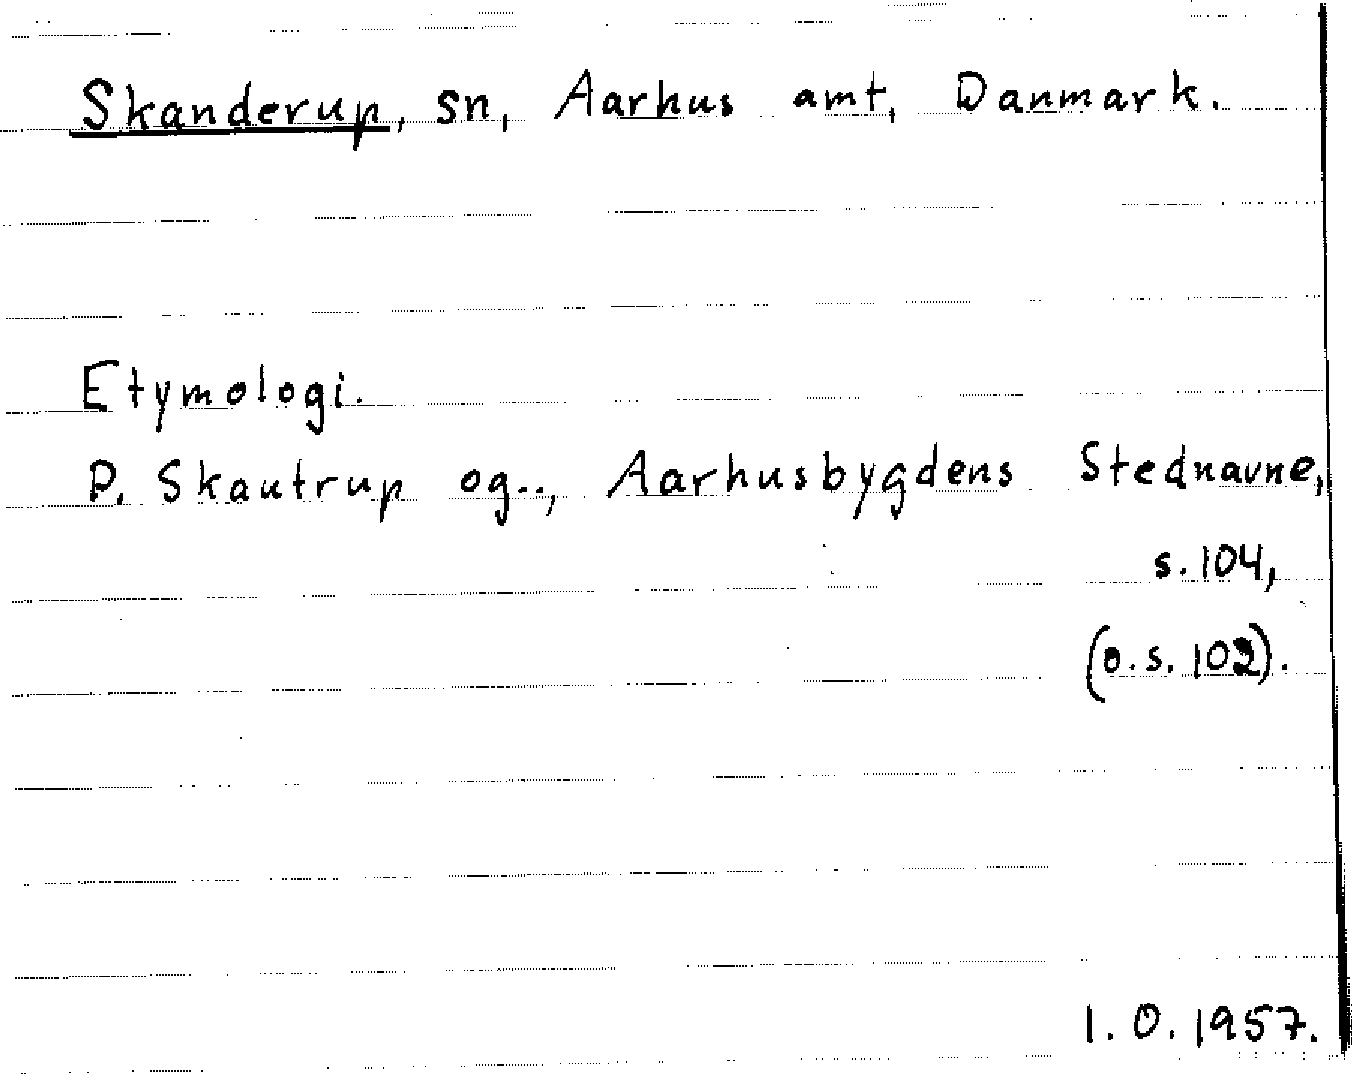 Skanderup, sn, Aarhus amt, Danmark.
Etymologi.
P. Skautrup og.., Aarhusbygdens Stednavne,
s. 104,
(o.s. 102).
I. O. 1957.